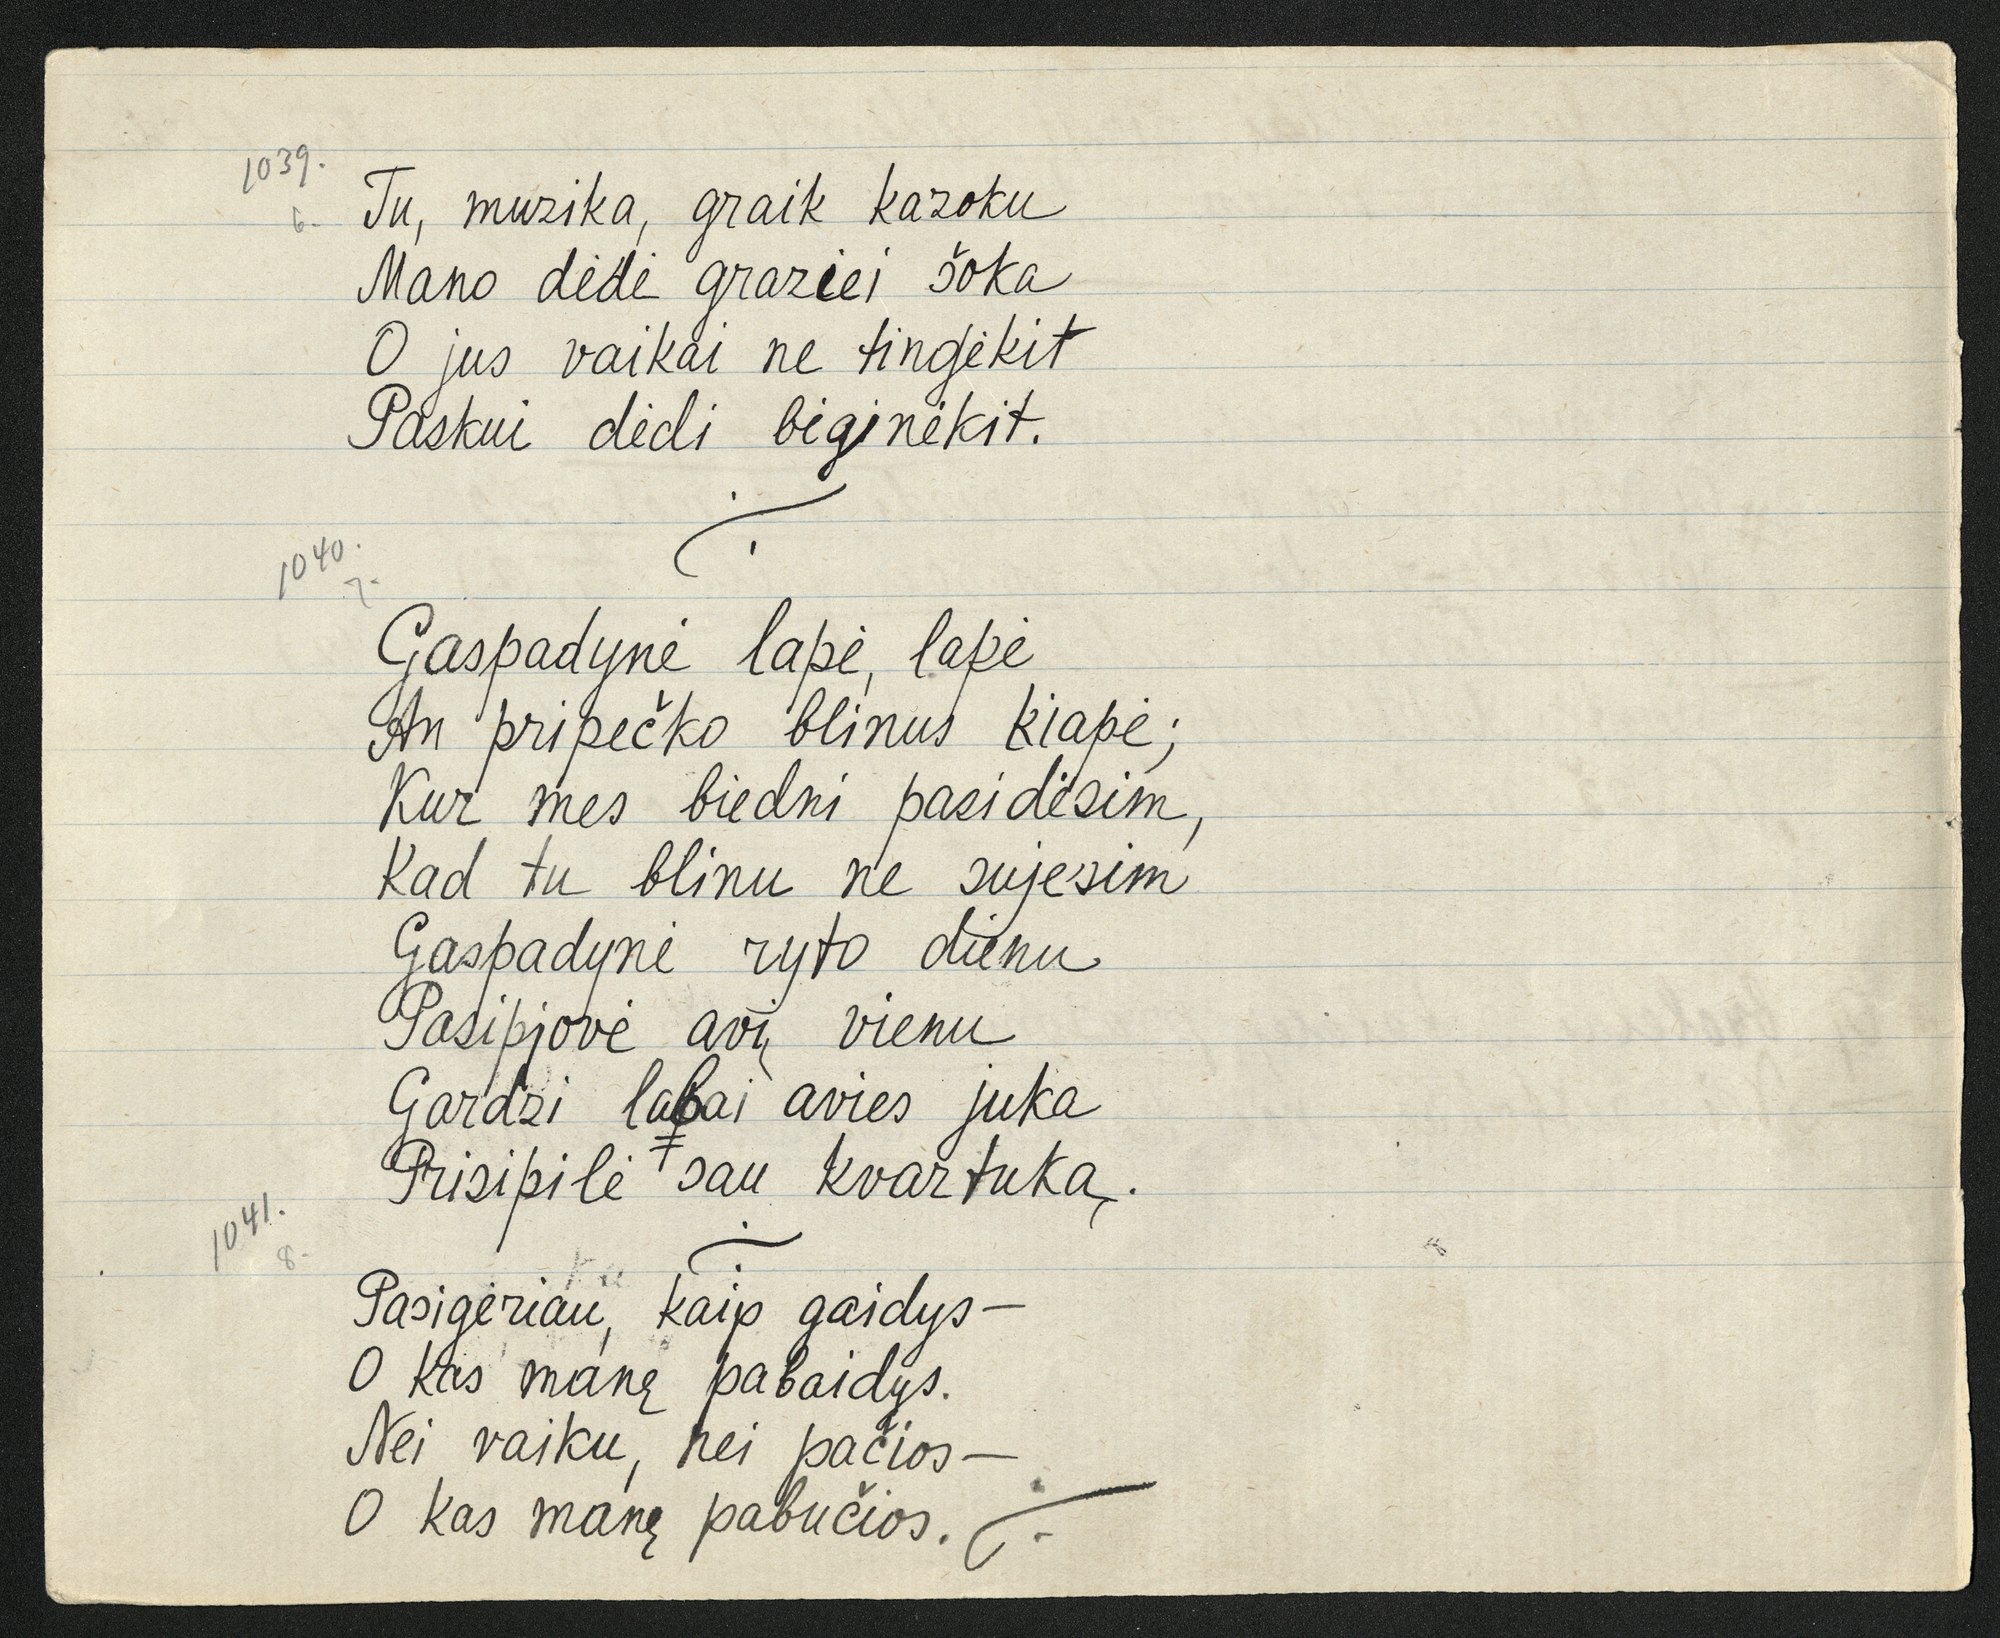 1039.
6. Tu, muzika, graik kazoku
Mano dėdė graziei šoka
O jus vaikai ne tingėkit
Paskui dėdi biginėkit.
1040.
7.
Gaspadynė lapė, lapė
An pripečko blinus kiapė;
Kur mes biedni pasidėsim,
Kad tu blinu ne sujesim
Gaspadynė ryto dienu
Pasipjovė avį vienu
Gardzi labai avies juka
Prisipilė sau kvartuką.
1041.
8.
Pasigėriau, kaip gaidys—
O kas manę pabaidys.
Nei vaiku, nei pačios—
O kas manę pabučios.